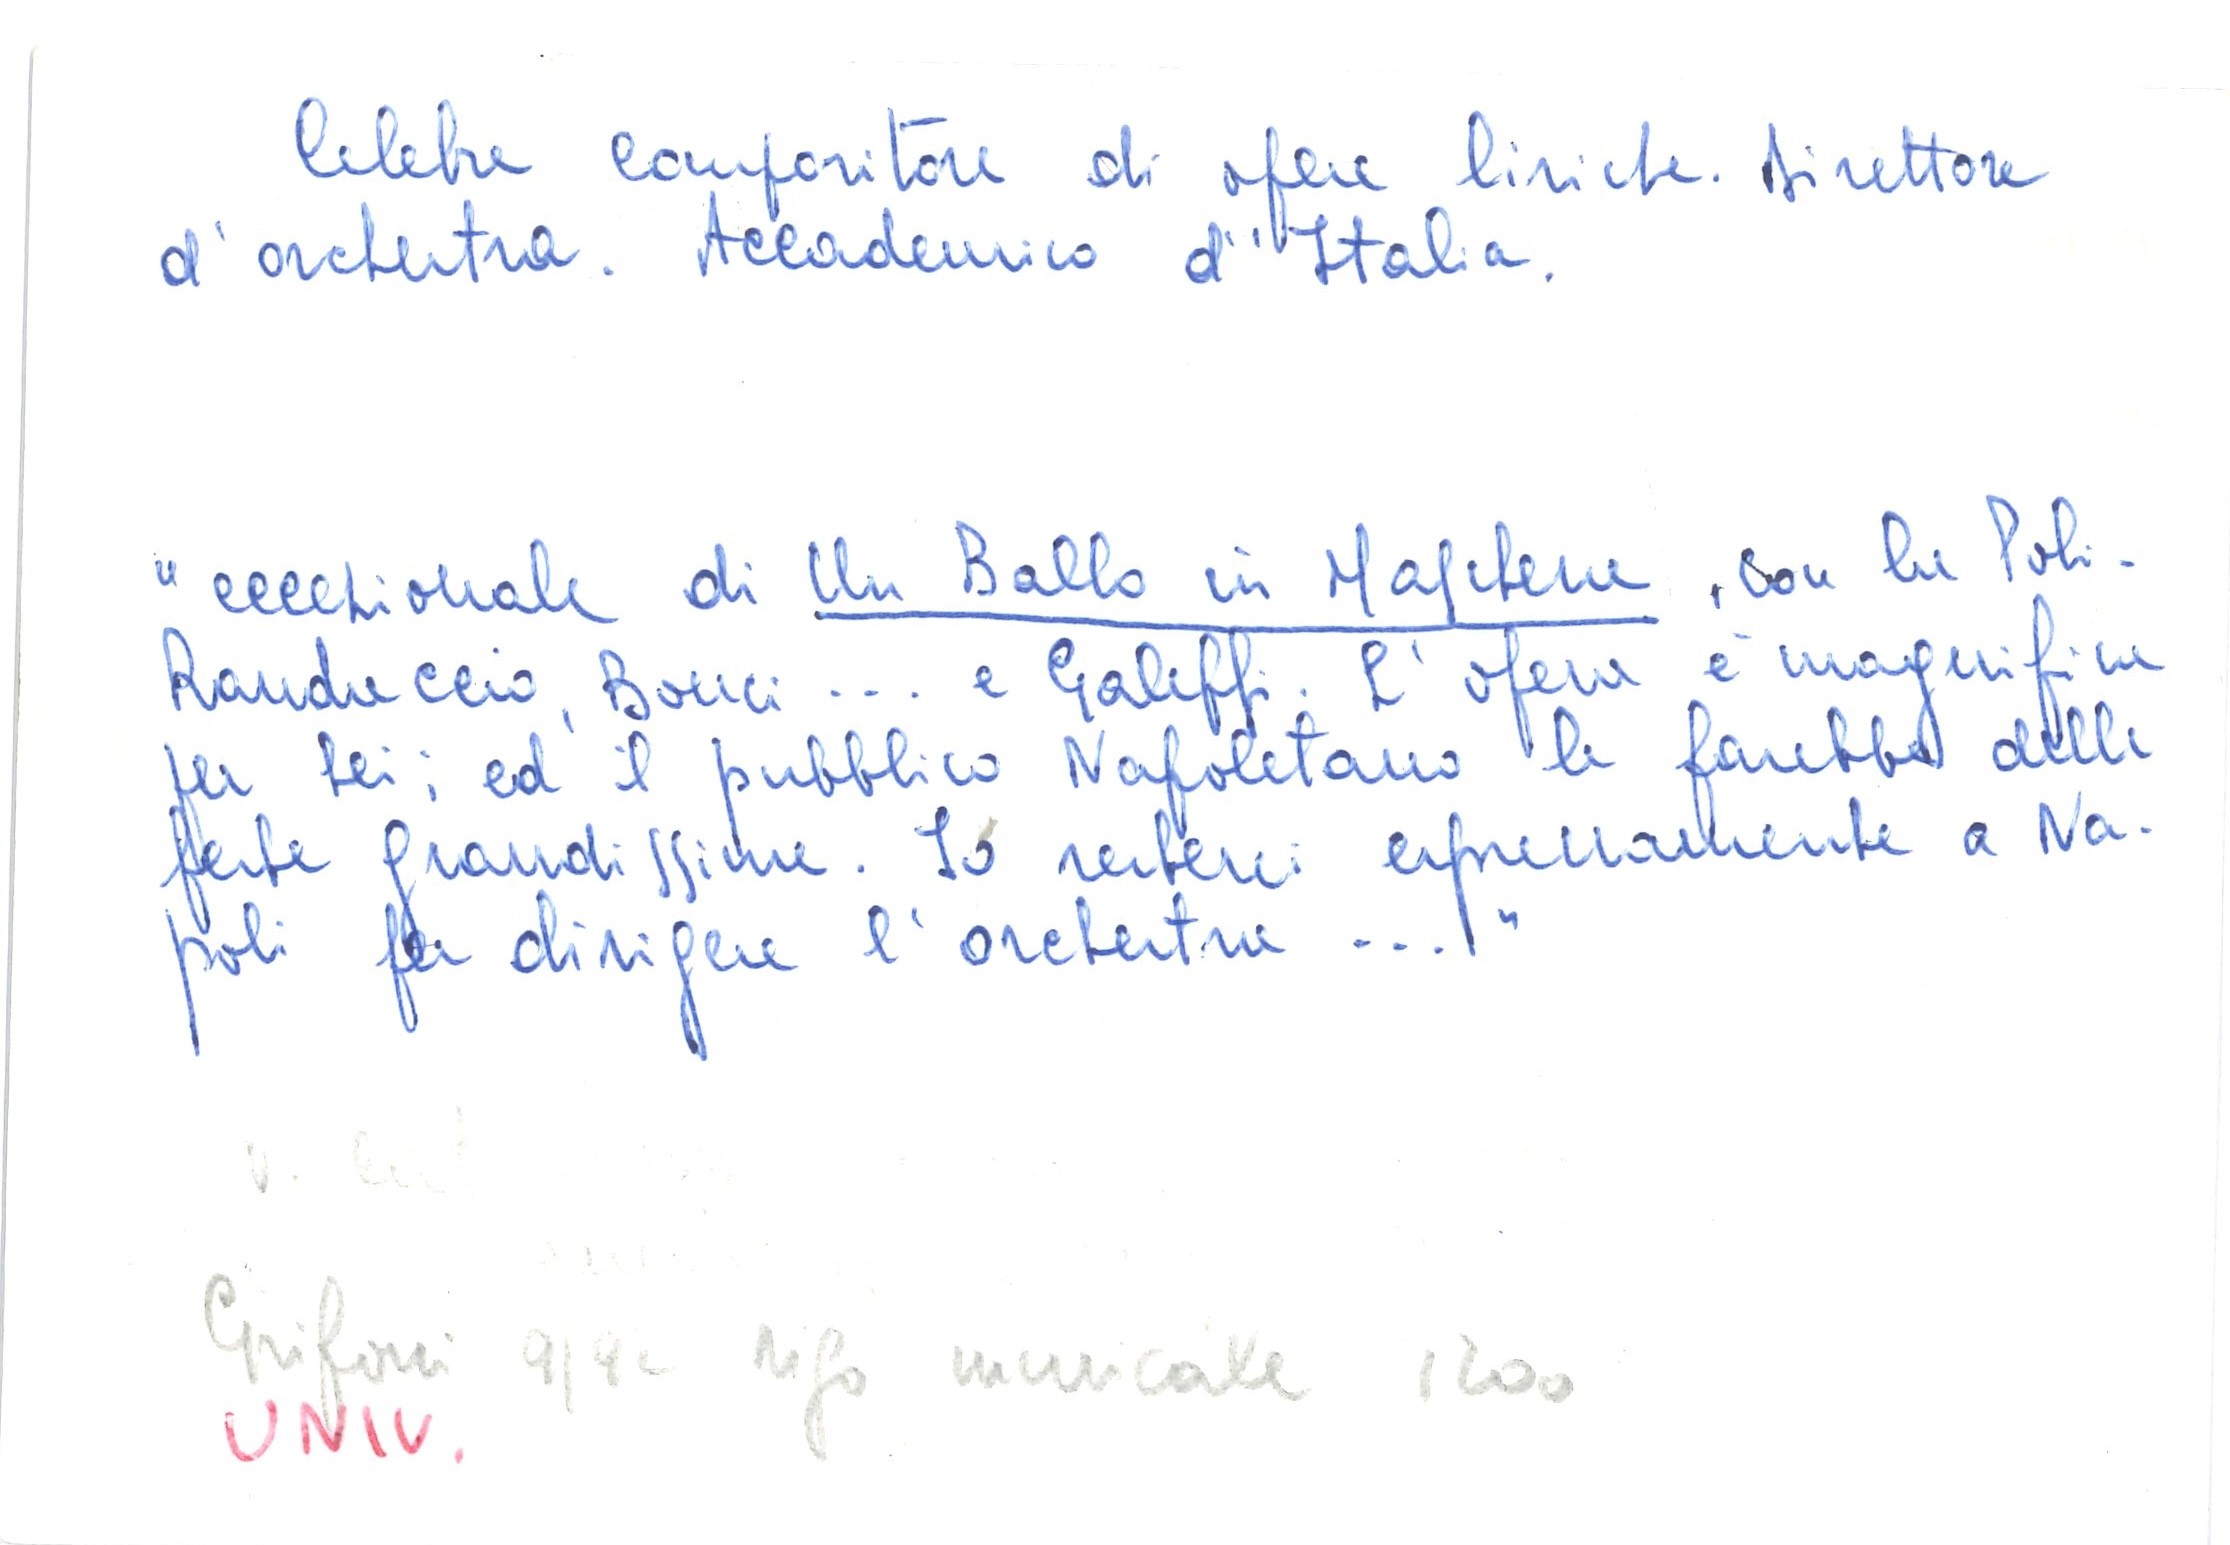 Celebre compositore di opere liriche. Direttore
d'orchestra. Accademico d'Italia.
"eccezionale di Un Ballo in Maschera, con la Poli-
Randaccio, Bonci ... e Galeffi. L'opera è magnifica
per Lei; ed il pubblico Napoletano le farebbe delle
feste grandissime. Io resterei espressamente a Na-
poli per dirigere l'orchestra ..."
v.
Grifoni 9/92 rigo musicale 1200
UNIV.